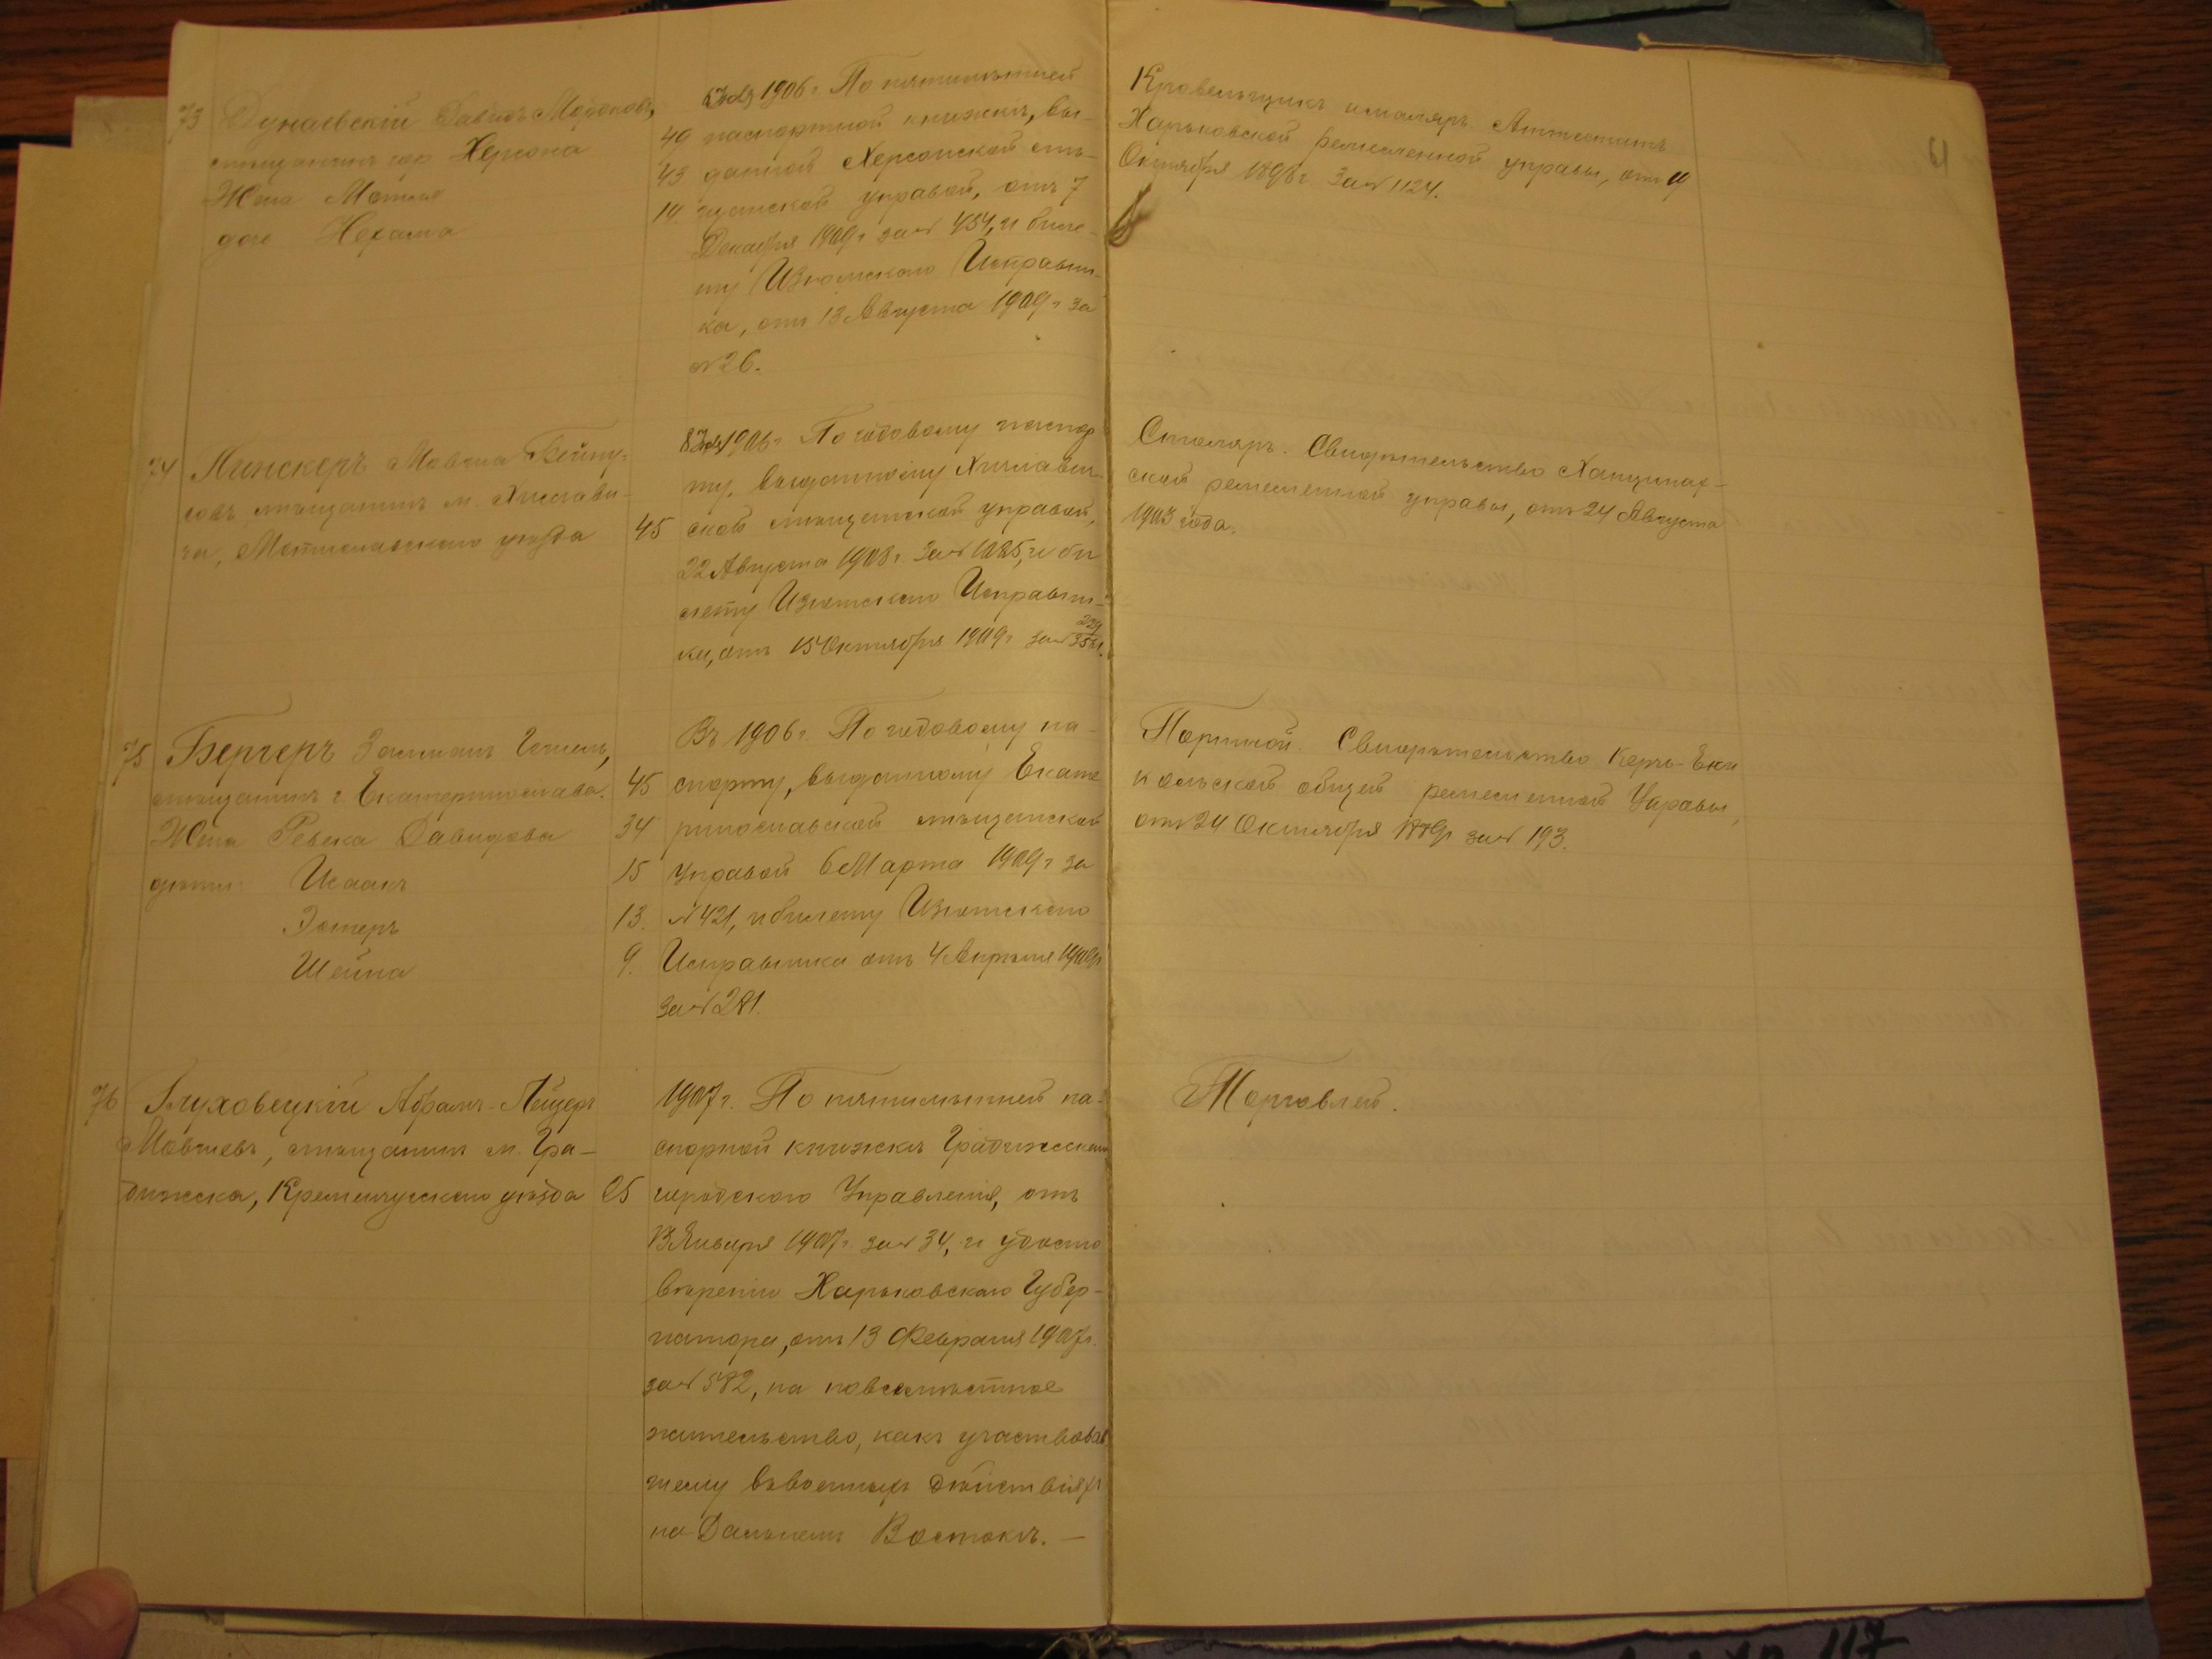 61
73 Дунаевскій Давидъ
мѣщанинъ гор Херсона
Жена
дочь Нехама
49
43
10
1906 г. По пятилѣтней
паспортной книжкѣ, вы-
данной Херсонской мѣ-
щанской управой, отъ 7
Декабря 1909 г за № 454, и биле-
ту Изюмскаго Исправни-
ка, отъ 13 Августа 1909 г за
№ 26.
Кровельщикъ и маляръ. Аттестатъ
Харьковской ремесленной управы, отъ
Октября 1898 г за № 1124.
74 Минскеръ Мовша Бейну-
совъ мѣщанинъ м. Хислави-
чи, Мстиславскаго уѣзда
45
1906 г По годовому паспор
ту, выданному Хиславич-
ской мѣщанской управой,
22 Августа 1908 г за № 1085, и би
лету Изюмскаго Исправни-
ка, отъ 15 Октября 1909 г за №
Столяръ. Свидѣтельство
ской ремесленной управы, отъ 24 Августа
1903 года.
75 Бергеръ Залманъ
мѣщанинъ г. Екатеринослава.
Жена Ревека Давидова
дѣти: Исаакъ
Эстеръ
Шейна
45
34
15
13.
9.
Въ 1906 г. По годовому па-
спорту, выданному Екате
ринославской мѣщанской
управой 6 Марта 1909 г за
№ 421, и билету Изюмскаго
Исправника отъ 4 Апрѣля 1909 г
за № 281.
Портной. Свидѣтельство Керчь-Ени
кольской общей ремесленной Управы,
отъ 24 Октября за № 193.
76 Глуховецкій Абрамъ-Лейзеръ
Мовшевъ, мѣщанинъ м. Гра-
дижска, Кременчугскаго уѣзда
25
1907 г. По пятилѣтней па-
спорной книжкѣ Градижскаго
городского Управленія, отъ
13 Января 1907 г за № 34, и удосто
вѣренію Харьковскаго Губер-
натора, отъ 13 Февраля 1907 г.
за № 582, на повсемѣстное
жительство, какъ участвовав
шему въ военныхъ дѣйствіяхъ
на Дальнемъ Востокѣ. —
Торговлей.
117